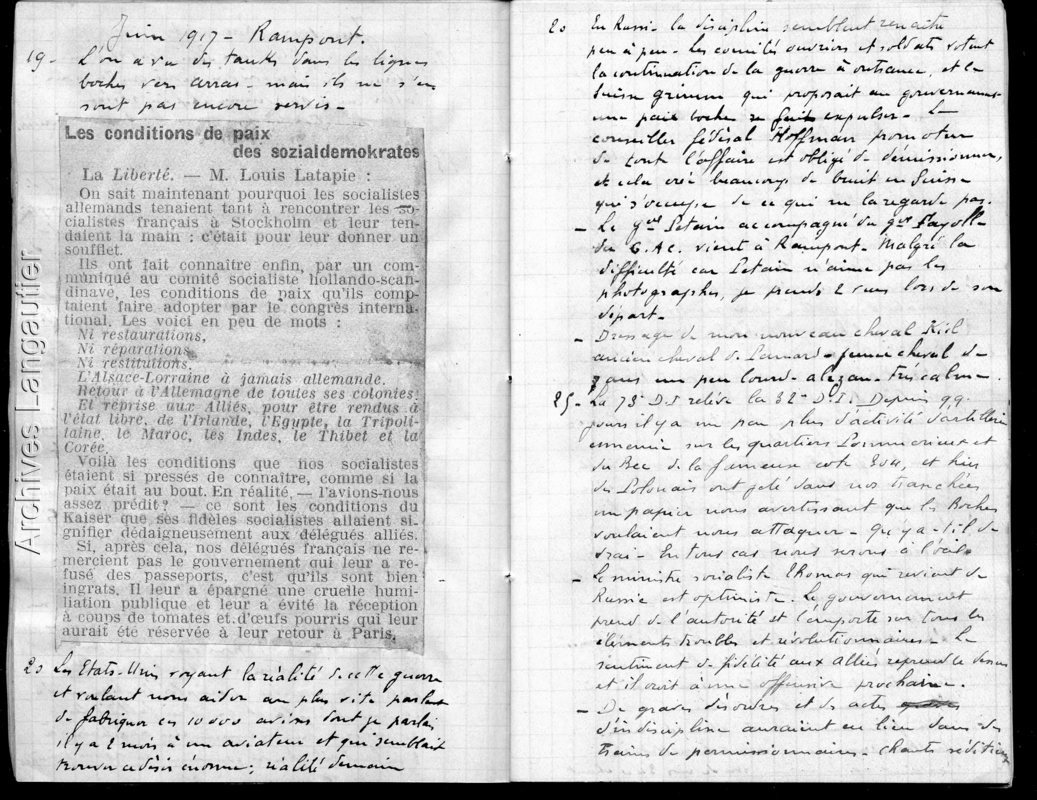 Juin 1917 - Rampont.
19 - L'on a vu des tanks dans les lignes
boches vers arras - mais ils ne s'en
sont pas encore servis -
Les conditions de paix
des sozialdemokrates
La Liberté. — M. Louis Latapie :
On sait maintenant pourquoi les socialistes
allemands tenaient tant à rencontrer les so-
cialistes français à Stockholm et leur ten-
daient la main : c'était pour leur donner un
soufflet.
Ils ont fait connaître enfin, par un com-
muniqué au comité socialiste hollando-scan-
dinave, les conditions de paix qu'ils comp-
taient faire adopter par le congrès interna-
tional. Les voici en peu de mots :
Ni restaurations,
Ni réparations,
Ni restitutions.
L'Alsace-Lorraine à jamais allemande.
Retour à l'Allemagne de toutes ses colonies;
Et reprise aux Alliés, pour être rendus à
l'état libre, de l'Irlande, l'Egypte, la Tripoli-
taine, le Maroc, les Indes, le Thibet et la
Corée.
Voilà les conditions que nos socialistes
étaient si pressés de connaître, comme si la
paix était au bout. En réalité, — l'avions-nous
assez prédit ? — ce sont les conditions du
Kaiser que ses fidèles socialistes allaient si-
gnifier dédaigneusement aux délégués alliés.
Si, après cela, nos délégués français ne re-
mercient pas le gouvernement qui leur a re-
fusé des passeports, c'est qu'ils sont bien
ingrats. Il leur a épargné une cruelle humi-
liation publique et leur a évité la réception
à coups de tomates et d'œufs pourris qui leur
aurait été réservée à leur retour à Paris.
20 Les Etats-Unis voyant la réalité de cette guerre
et voulant nous aider au plus vite parlent
de fabriquer ces 10 000 avions dont je parlais
il y a 2 mois à un aviateur et qui semblait
trouver ce désir énorme ; réalité demain
Archives Langautier
20 En Russie la discipline semblent renaître
peu à peu - Les comités ouvriers et soldats votent
la continuation de la guerre à outrance, et le
Suisse grimm qui proposait au gouvernement
une paix boche se fait expulser - Le
conseiller fédéral Hoffman promoteur
de tout l'affaire est obligé de démissionner,
et cela crée beaucoup de bruit en Suisse
qui s'occupe de ce qui ne la regarde pas.
- Le gal Petain accompagné du gal Fayolle
du G.A.C. vient à Rampont. Malgré la
difficulté car Petain n'aime pas les
photographes, je prends 2 vues lors de son
depart -
- Dressage de mon nouveau cheval Kiel
ancien cheval de - jeune cheval de
7 ans un peu lourd - alezan -
25 - La 73e D.I relève la 32e D.I. Depuis qq.
jours il y a un peu plus d'activité d'artillerie
ennemie sur les quartiers Pommerieux et
du Bec de la fameuse cote 304, et hier
des Polonais ont jeté dans nos tranchées
un papier nous avertissant que les Boches
voulaient nous attaquer - Qu'y a-t-il de
vrai - En tous cas nous serons à l'oeil
- Le ministre socialiste Thomas qui revient de
Russie est optimiste. Le gouvernement
prend de l'autorité et l'emporte sur tous les
éléments troubles et révolutionnaires - Le
sentiment de fidélité aux Alliés reprend le dessus
et il croit à une offensive prochaine.
- De graves désordres et des actes
d'indiscipline auraient eu lieu dans des
trains de permissionnaires - chants séditieux